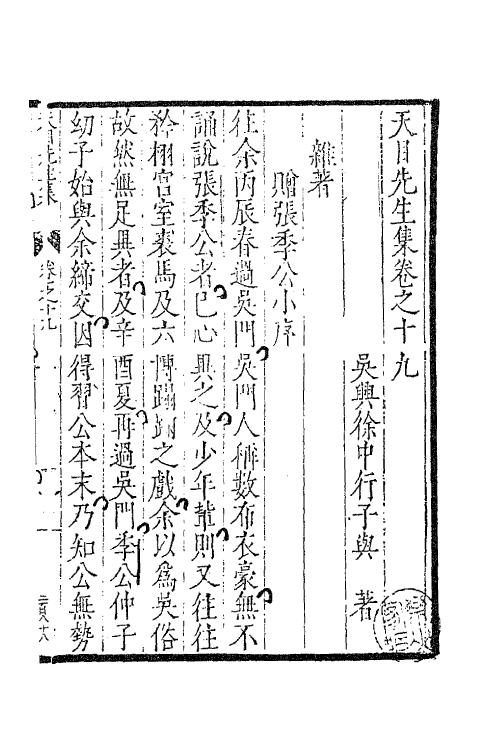 天目先生集卷之十九
吳興徐中行子與 著
雜著
贈張季公小序
往余丙辰春過吳門吳門人稱數布衣豪無不
誦說張季公者已心異之及少年輩則又往往
矜栩宮室裘馬及六博蹋踘之戲余以為吳俗
故然無足異者及辛酉夏再過吳門季公仲子
幼子始與余締交因得習公本末乃知公無勢
卷之十九